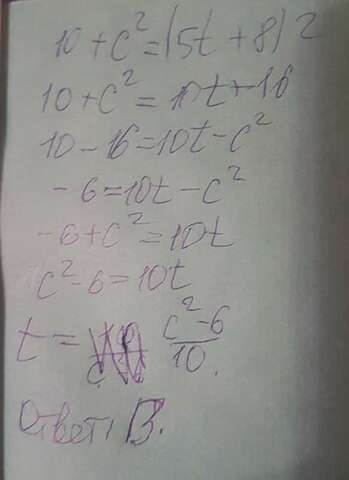 10 + c² = (5t + 8) 2
10 + c² = 10t + 16
10 - 16 = 10t - c²
- 6 = 10t - c²
- 6 + c² = 10t
c² - 6 = 10t
t = c² - 6 / 10
Ответ: В.